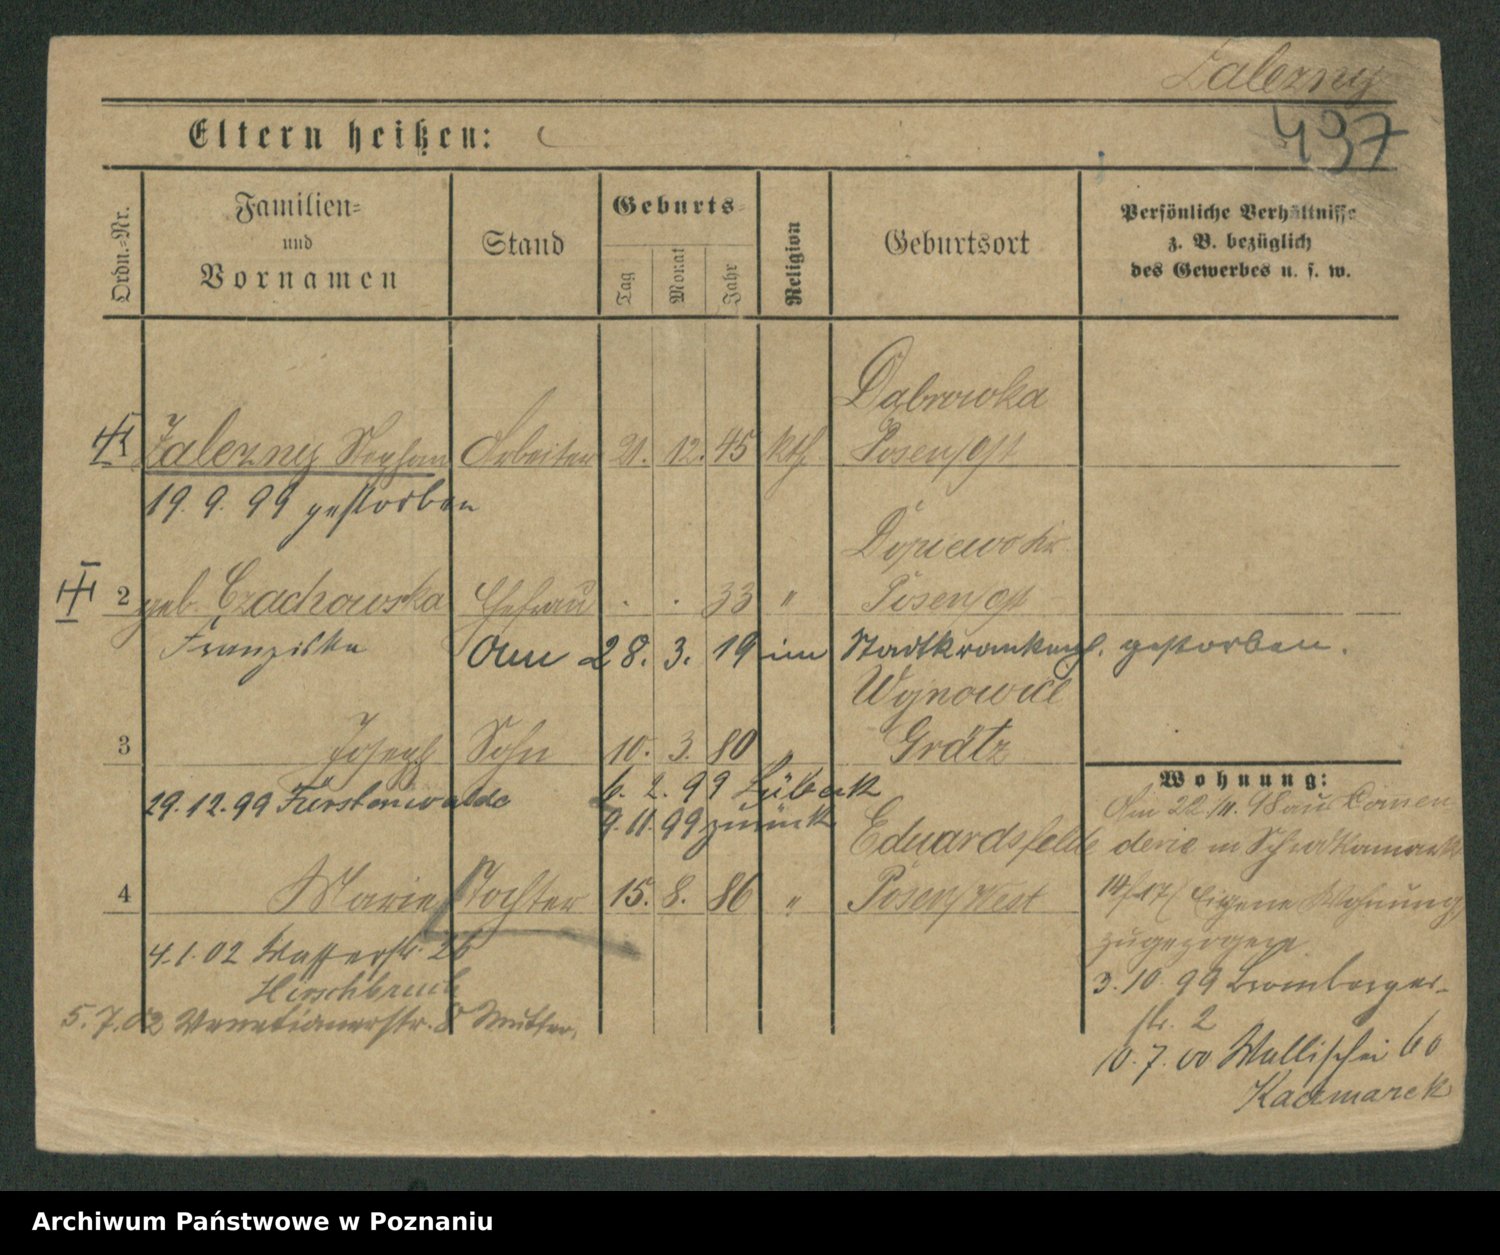 Zalezny
437
Eltern heißen:
Ordn.-Nr.
Familien-
und
Vornamen
Stand
Geburts-
Tag
Monat
Jahr
Religion
Geburtsort
Persönliche Verhältnisse
z. B. bezüglich
des Gewerbes u. s. w.
Dabrowka
1 Zalezny Stephan Arbeiter 21. 12. 45 kth Posen/Ost
19. 9. 99 gestorben
Dopiewo
2 geb. Czachowska Ehefrau . . 33 " Posen/Ost
Franziska
Am 28. 3. 19 im Stadtkrankenh. gestorben.
Wojnowice
3 Joseph Sohn 10. 3. 80 " Grätz
29. 12. 99 Fürstenwalde
6. 2. 99 Lübeck
9. 11. 99 zurück
Eduardsfelde
4 Marie Tochter 15. 8. 86 " Posen/West
4. 1. 02 Wasserstr. 26
Hirschbruch
5. 7. 02 Venetianerstr. 8 Mutter.
Wohnung:
Am 22./11. 98 aus Comen
derie in
Eigene Wohnung
zugezogen
3. 10. 99 Bromberger-
str. 2
10. 7. 00 Wallischei 60
Kaczmarek
Archiwum Państwowe w Poznaniu